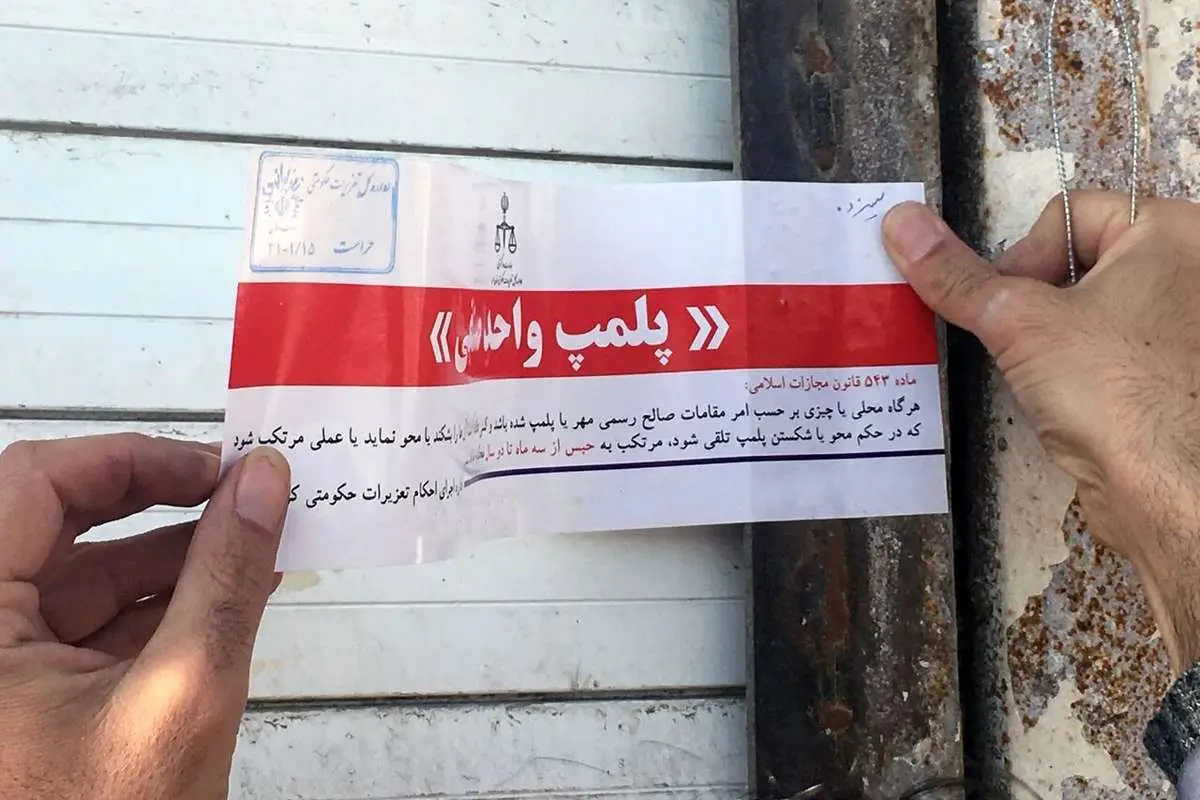 اداره کل تعزیرات حکومتی
حراست
سیزده
« پلمپ واحد صنفی »
ماده ۵۴۳ قانون مجازات اسلامی:
هر گاه محلی یا چیزی بر حسب امر مقامات صالح رسمی مهر یا پلمپ شده باشد و کسی را بشکند یا محو نماید یا عملی مرتکب شود
که در حکم محو یا شکستن پلمپ تلقی شود، مرتکب به حبس از سه ماه تا دو سال
اجرای احکام تعزیرات حکومتی